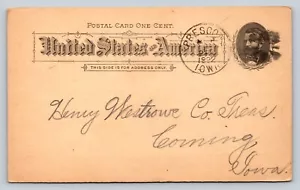 POSTAL CARD ONE CENT.
United States of America
THIS SIDE IS FOR ADDRESS ONLY.
CRESCO
IOWA
Henry Westrowe Co. Treas.
Corning
Iowa.